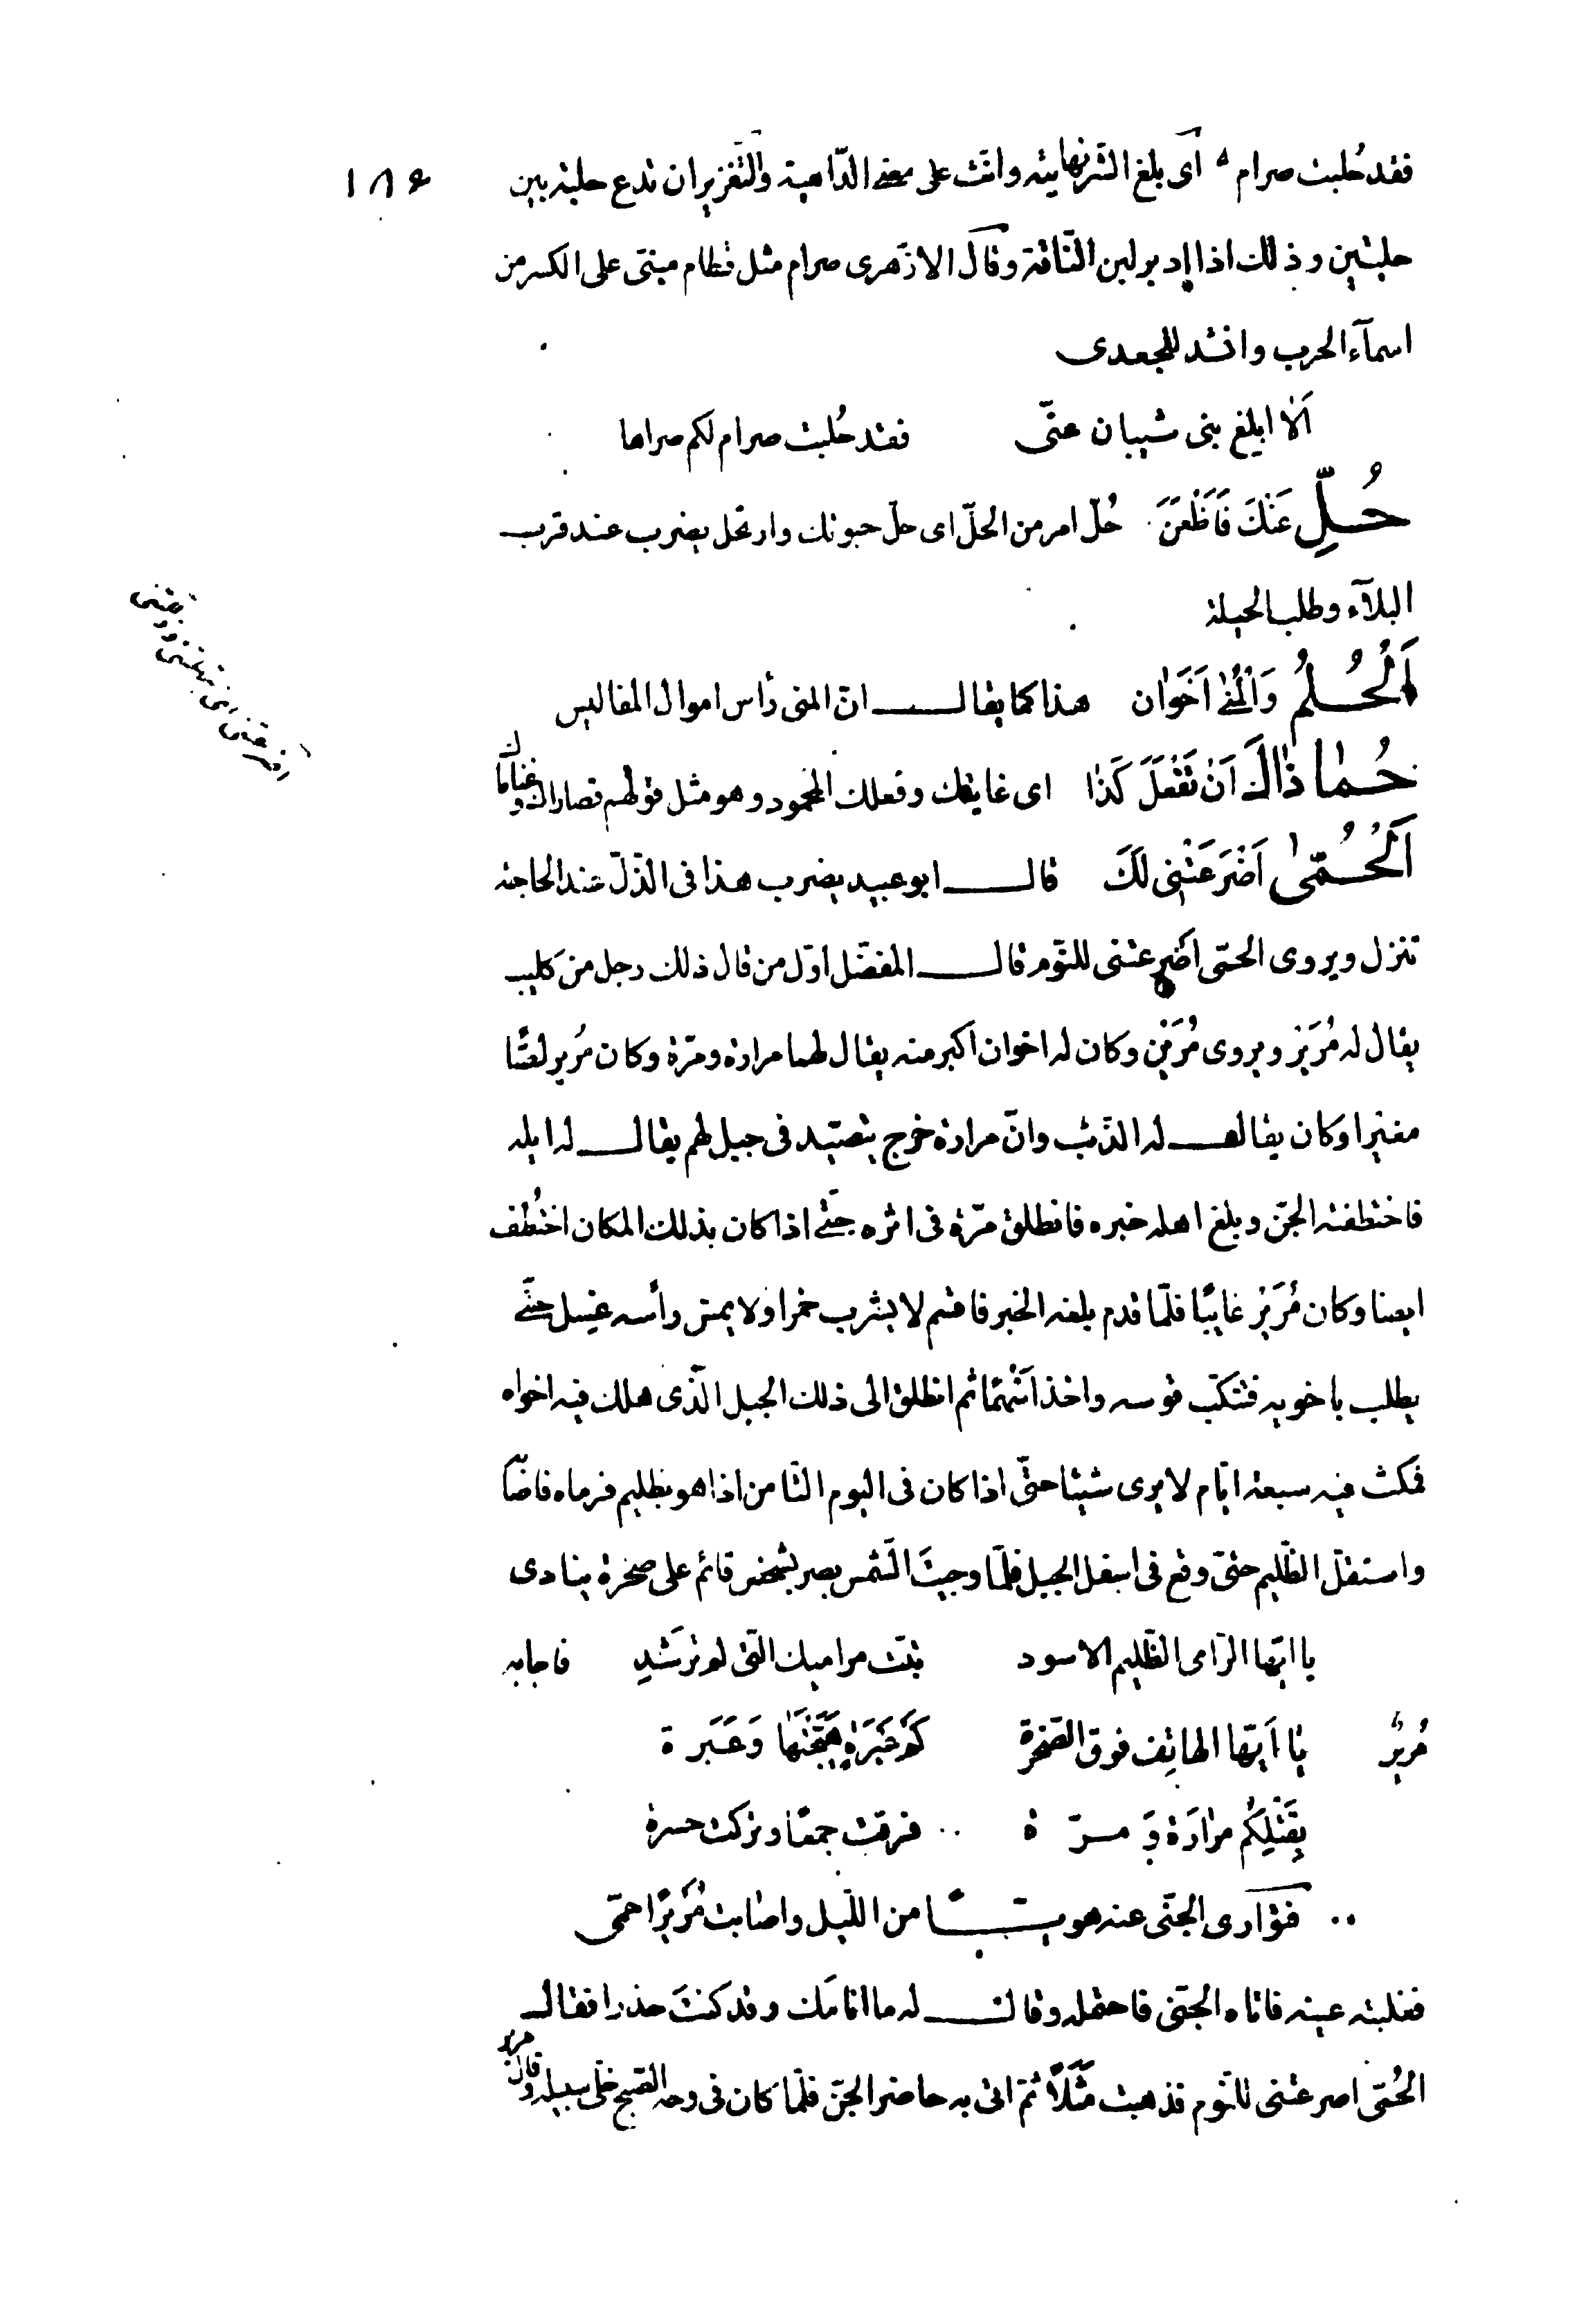 ١٨٤
فقد حُلبت صرام اى بلغ الشر نهايته وانّث على معنى الدّاهية والتّغزيران تدع حلبة بين
حلبتين وذلك اذا ادبر لبن النّاقة وقال الازهرى صرام مثل قطام مبنىّ على الكسر من
اسمآء الحرب وانشد للجعدى
اَلا ابلغ بنى شيبان عنّى فقد حُلبت صرام لكم صراها
حُلِّ عَنْكَ فَاَظْعَنَ حُلّ امر من الحلّ اى حلّ حبوتك وارتحل يضرب عند قرب
البلآء وطلب الحيلة
اَلْحُلُمُ وَالْمُنٰى اَخَوٰان هذا كما يقال انّ المنى رأس اموال المفاليس
حُمٰا ذٰالَكَ اَنْ تَفْعَلَ كَذٰا اى غايتك وفعلك المحمود وهو مثل قولهم قصاراك وغناماك
اَلْحُمّىٰ اَضْرَعَتْنِى لَكَ قال ابو عبيد يضرب هذا فى الذّلّ عند الحاجة
تنزل ويروى الحمّى اضرعتنى للنّوم قال المفضّل اوّل من قال ذلك رجل من كليب
يقال له مُرَيْر ويروى مُرَيْن وكان له اخوان اكبر منه يقال لهما مرارة ومرّة وكان مُرير لصًّا
مغيرا وكان يقال له الذّئب وانّ مرارة خرج يتصيّد فى جبل لهم يقال له ابله
فاختطفته الجنّ وبلغ اهله خبره فانطلق مرّة فى اثره حتّى اذا كان بذلك المكان اختُطف
ايضا وكان مُرَيْر غايبًا فلمّا قدم بلغه الخبر فاقسم لا يشرب خمرا ولا يمسّ رأسه غسل حتّى
يطلب باخويه فتنكّب قوسه واخذ اَسْهُمًا ثم انطلق الى ذلك الجبل الّذى هلك فيه اخواه
فمكث فيه سبعة ايّام لا يرى شيئا حتّى اذا كان فى اليوم الثّامن اذا هو بظليم فرماه فاصابه
واستقلّ الظّليم حتّى وقع فى اسفل الجبل فلمّا وجبت الشّمس بصر بشخص قائم على صخرة ينادى
يا ايّها الرّامى الظّليم الاسود تبّت مراميك الّتى لم تَرشُدِ فاجابه
مُريرٌ يٰا اَيّها الهاتِف فوق الصّخرة كَمْ عَبْرَةٍ هَيَّجْتَهٰا وَعَبَرة
بِقَتْلِكُم مرٰارَة وَ مرّة فرقت جمعًا وتركت حسرة
فتوآرى الجنّى عنه هويًّا من اللّيل واصٰابت مُرَيرًا حمّى
فغلبته عينه فاتاه الجنّى فاحتمله وقال له ما انامك وقد كنتَ حذرا فقال
الحُمّى اضرعتنى للنّوم فذهبت مَثَلًا ثمّ اتى به حاضر الجنّ فلمّا كان فى وجه الصّبح خلّى سبيله وقال مرير